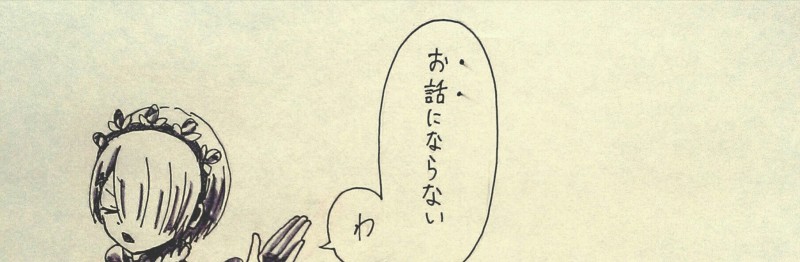 お話にならない
わ